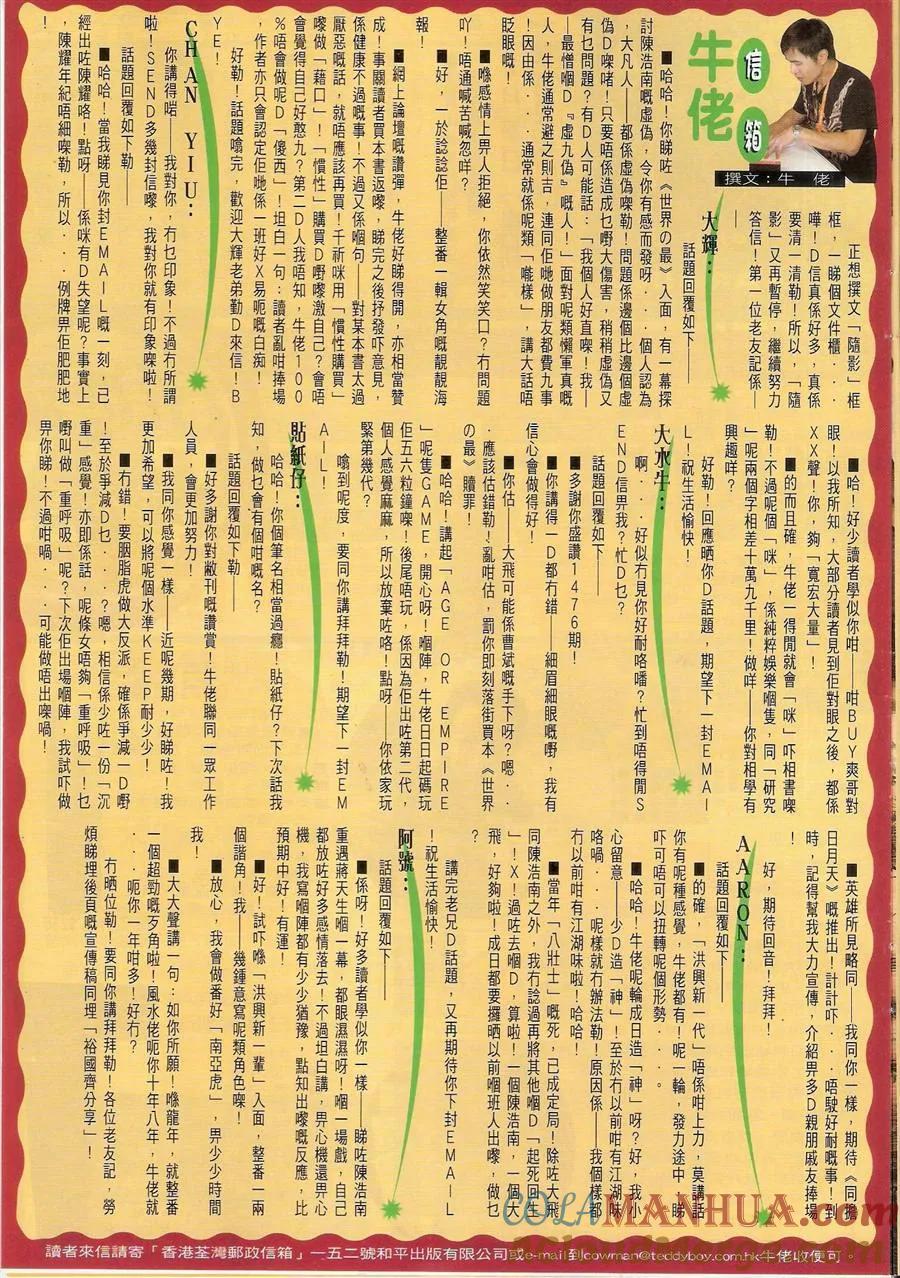 牛佬
信箱
撰文：牛佬
正想撰文「隨影」框
框，一睇個文件櫃．．．
嘩！D信真係好多，真係
要清一清勒！所以，「隨
影」又再暫停，繼續努力
答信！第一位老友記係—
—
大輝：
話題回覆如下——
■哈哈！你睇咗《世界の最》入面，有一幕探
討陳浩南嘅虛偽，令你有感而發呀．．．個人認為
，大凡人——都係虛偽㗎勒！問題係邊個比邊個虛
偽D㗎啫！只要唔係造成乜嘢大傷害，稍稍虛偽又
有乜問題？有D人可能話：「我個人好直㗎！我—
—最憎個D『虛九偽』嘅人！」面對呢類懶軍真嘅
人，牛佬通常避之則吉，連同佢哋做朋友都費九事
！因由係．．．通常就係呢類「樣」，講大話唔
眨眼嘅！
■喺感情上畀人拒絕，你依然笑笑口？冇問題
吖！唔通喊苦喊忽咩？
■好，一於諗諗佢——整番一輯女角嘅靚靚海
報！
■網上論壇嘅讚彈，牛佬好睇得開，亦相當贊
成！事關讀者買本書返嚟，睇完之後抒發吓意見，
係健康不過嘅事！不過又係嗰句——對某本書太過
厭惡嘅話，就唔應該再買！千祈咪用「慣性購買」
嚟做「藉口」！「慣性」購買D嘢嚟激自己？會唔
會覺得自己好憨九？第二D人我唔知，牛佬100
％唔會做呢D「傻西」！坦白一句：讀者亂咁捧場
，作者亦只會認定佢哋係一班好X易呃嘅白痴！
好勒！話題噏完，歡迎大輝老弟勤D來信！B
YE！
CHAN YIU：
你講得啱——我對你，冇乜印象！不過冇所謂
啦！SEND多幾封信嚟，我對你就有印象㗎啦！
話題回覆如下勒——
■哈哈！當我睇見你封EMAIL嘅一刻，己
經出咗陳耀咯！點呀——係咪有D失望呢？事實上
，陳耀年紀唔細㗎勒，所以．．．例牌畀佢肥肥地
■哈！好少讀者學似你咁——咁BUY爽哥對
眼！以我所知，大部分讀者見到佢對眼之後，都係
XX聲！你，夠「寬宏大量」！
■的而且確，牛佬一得閒就會「咪」吓相書㗎
勒！不過呢個「咪」，係純粹娛樂嗰隻，同「研究
」呢兩個字相差十萬九千里！做咩——你對相學有
興趣咩？
好勒！回應晒你D話題，期望下一封EMAI
L！祝生活愉快！
大水牛：
啊．．．好似冇見你好耐咯噃？忙到唔得閒S
END信畀我？忙D乜？
話題回覆如下——
■多謝你盛讚1476期！
■你講得一D都冇錯——細眉細眼嘅嘢，我有
信心會做得好！
■你估——大飛可能係曹斌嘅手下呀？嗯．．
．應該估錯勒！亂咁估，罰你即刻落街買本《世界
の最》贖罪！
■哈哈！講起「AGE OR EMPIRE
」呢隻GAME，開心呀！嗰陣，牛佬日日起碼玩
佢五六粒鐘㗎！後尾唔玩，係因為佢出咗第二代，
個人感覺麻麻，所以放棄咗咯！點呀——你依家玩
緊第幾代？
噏到呢度，要同你講拜拜勒！期望下一封EM
AIL！
貼紙仔：
哈哈！你個筆名相當過癮！貼紙仔？下次話我
知，做乜會有個咁嘅名？
話題回覆如下勒——
■好多謝你對敝刊嘅讚賞！牛佬聯同一眾工作
人員，會更加努力！
■我同你感覺一樣——近呢幾期，好睇咗！我
更加希望，可以將呢個水準KEEP耐少少！
■冇錯！要胭脂虎做大反派，確係爭減一D嘢
！至於爭減D乜．．．？嗯，相信係少咗一份「沉
重」感覺！亦即係話，呢條女唔夠「重呼吸」！乜
嘢叫做「重呼吸」呢？下次佢出場嗰陣，我試吓做
畀你睇！不過咁喎．．．可能做唔出㗎喎！
■英雄所見略同——我同你一樣，期待《同擔
日月天》嘅推出！計計吓．．．唔駛好耐嘅事！到
時，記得幫我大力宣傳，介紹畀多D親朋戚友捧場
！
好，期待回音！拜拜！
AARON：
話題回覆如下——
■的確，「洪興新一代」唔係咁上力，莫講話
你有呢種感覺，牛佬都有！呢一輪，發力途中，睇
吓可唔可以扭轉呢個形勢．．．。
■哈哈！牛佬呢輪成日造「神」呀？好，我小
心留意——少D造「神」！至於冇以前咁有江湖味
咯喎．．．呢樣就冇辦法勒！原因係——我個樣都
冇以前咁有江湖味啦！哈哈！
■當年「八壯士」嘅死，已成定局！除咗大飛
同陳浩南之外，我冇諗過再將其他嗰D「起死回生
」！X！過咗去嗰D，算啦！一個陳浩南，一個大
飛，好夠啦！成日都要攞晒以前嗰班人出嚟，做乜
？
講完老兄D話題，又再期待你下封EMAIL
！祝生活愉快！
阿號：
話題回覆如下——
■係呀！好多讀者學似你一樣——睇咗陳浩南
重遇蔣天生嗰一幕，都眼濕濕呀！嗰一場戲，自己
都放咗好多感情落去！不過坦白講，畀心機還畀心
機，我寫嗰陣都有少少猶豫，點知出嚟嘅反應，比
預期中好！有運！
■好！試吓喺「洪興新一輩」入面，整番一兩
個諧角！我——幾鍾意寫呢類角色㗎！
■放心，我會做番好「南亞虎」，畀少少時間
我！
■大大聲講一句：如你所願！喺龍年，就整番
一個超勁嘅歹角啦！風水佬呃你十年八年，牛佬就
．．．呃你一年咁多！好冇？
冇晒位勒！要同你講拜拜勒！各位老友記，勞
煩睇埋後頁嘅宣傳稿同埋「裕國齊分享」！
COLAMANHUA.COM
讀者來信請寄「香港荃灣郵政信箱」一五二號和平出版有限公司或e-mail到cowman@teddyboy.com.hk牛佬收便可。